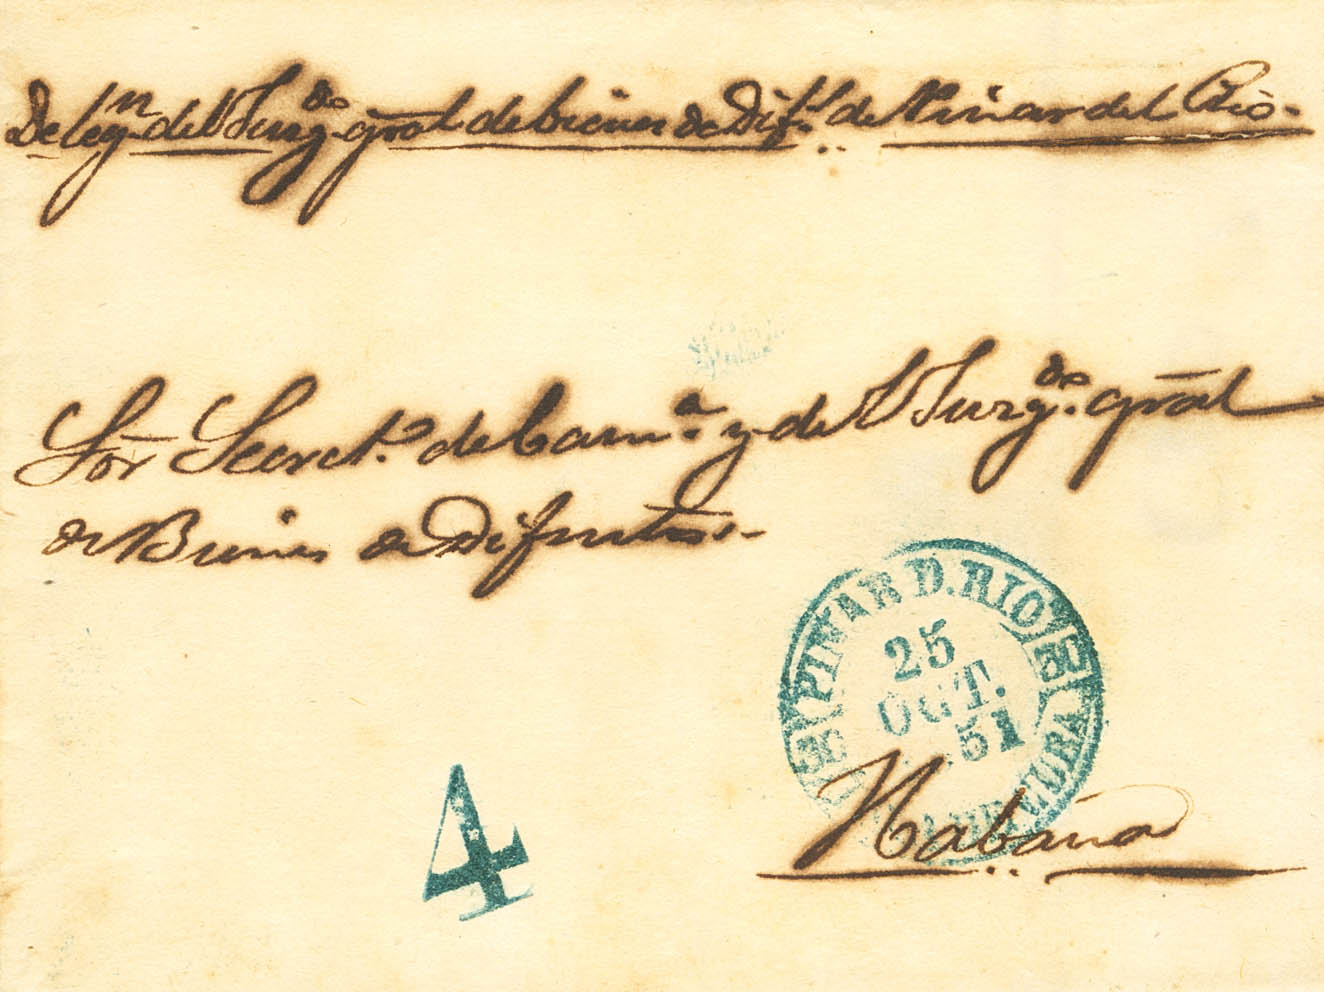 Delegn. del Juzgdo. gral de bienes de Diftos. de Pinar del Rio.
Sor Secreto. de Cama. y del Juzgdo. gral
de Bienes de Difuntos.
PINAR D. RIO
25
OCT.
51
CUBA
4
Habana